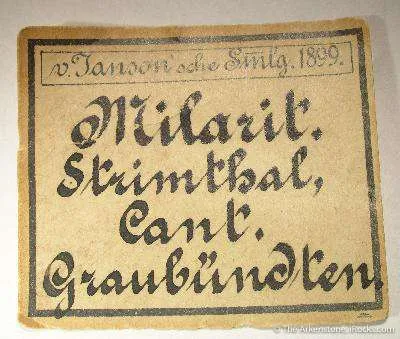 v. Janson'sche Sm̅lg. 1899.
Milarit.
Strimthal,
Cant.
Graubündten.
© TheArkenstone iRocks.com